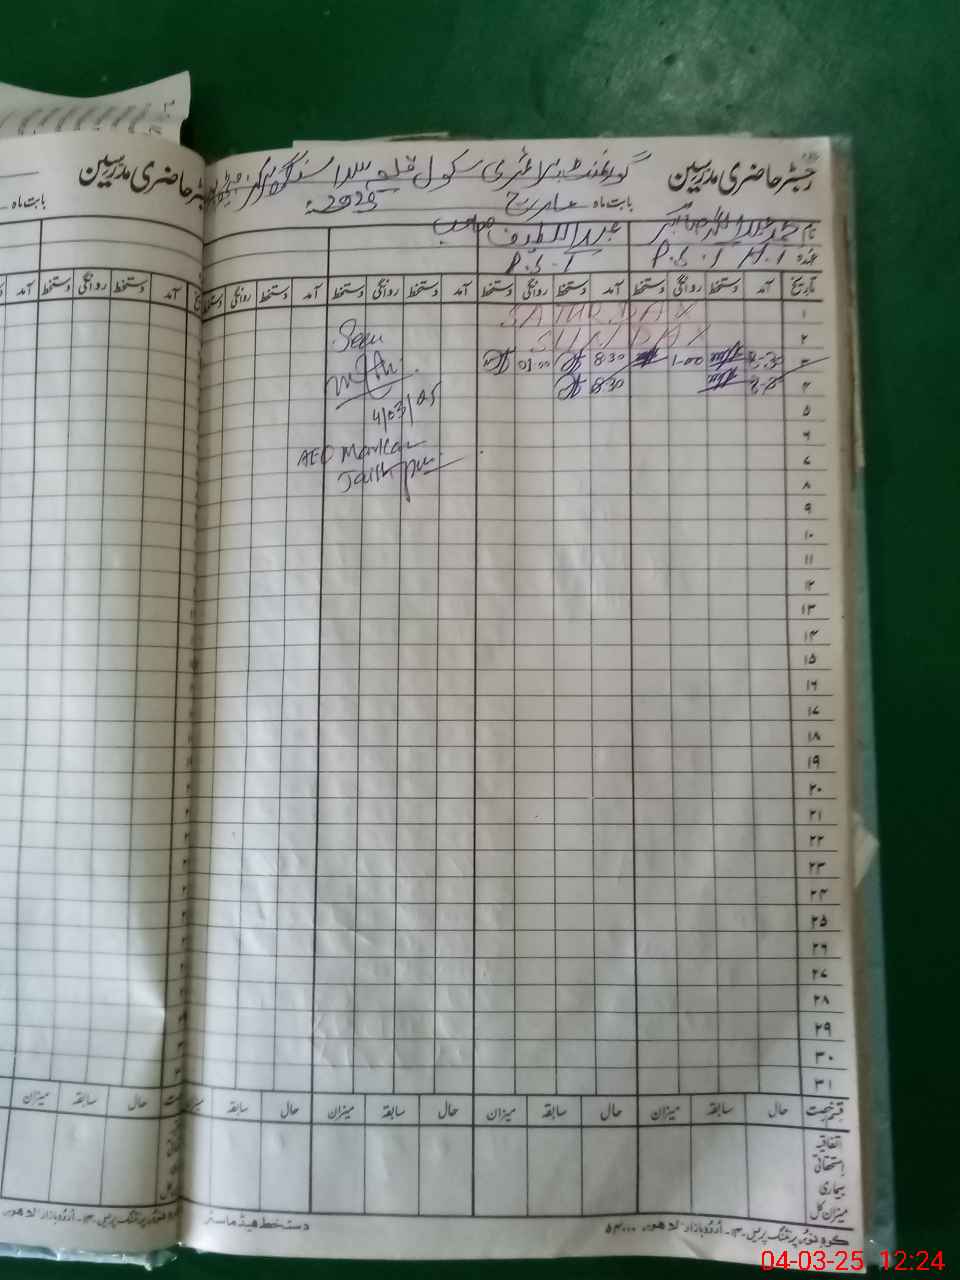 رجسٹر حاضری مدرسین گورنمنٹ پرائمری سکول قلعہ سدا سنگھ مرکز
بابت ماہ مارچ 2025ء
نام محمد عبداللہ صابر عبداللطیف صاحب
عہدہ P.S.T H.T P.S.T
تاریخ آمد دستخط روانگی دستخط آمد دستخط روانگی دستخط آمد دستخط روانگی دستخط آمد دستخط روانگی دستخط
۱ SATURDAY
۲ SUNDAY
۳ 8-30 1-00 8:30 01:00
۴ 8-30 8:30
۵
۶
۷
۸
۹
۱۰
۱۱
۱۲
۱۳
۱۴
۱۵
۱۶
۱۷
۱۸
۱۹
۲۰
۲۱
۲۲
۲۳
۲۴
۲۵
۲۶
۲۷
۲۸
۲۹
۳۰
۳۱
Seen
4/03/25
AEO Markaz
قسم رخصت حال سابقہ میزان حال سابقہ میزان حال سابقہ میزان حال سابقہ میزان
اتفاقیہ
استحقاقی
بیماری
میزان کل
دستخط ہیڈ ماسٹر
رجسٹر حاضری مدرسین
بابت ماہ
آمد دستخط روانگی دستخط
حال سابقہ میزان
04-03-25 12:24